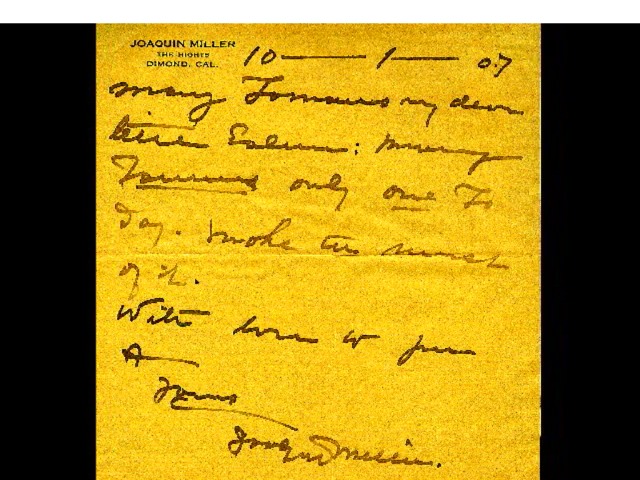 JOAQUIN MILLER
THE HIGHTS
DIMOND, CAL.
10 — 1 — 07
many Tomorrows my dear
little : many
Tomorrows only one To
Day. make the most
of it.
With love to you
Yours
Joaquin Miller.